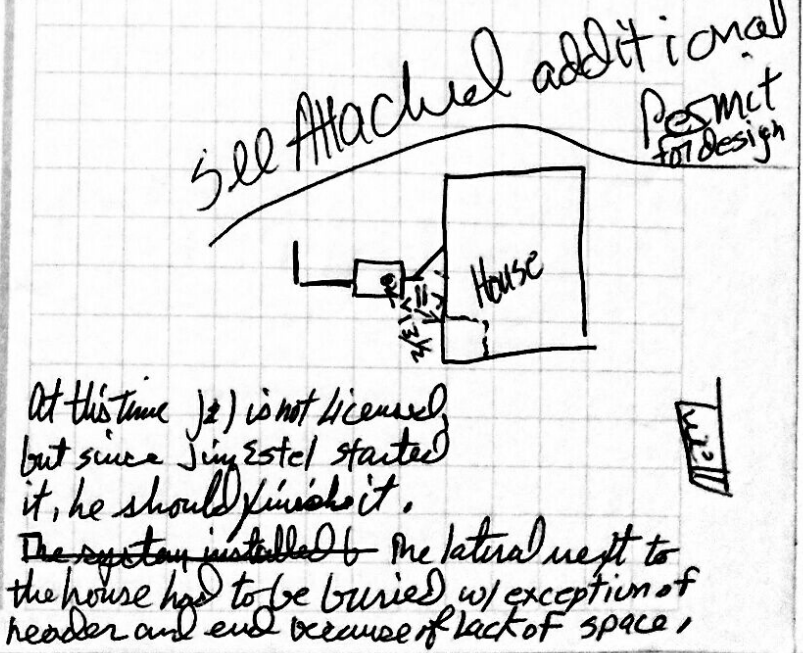 See Attached additional
Permit
for design
House
11
13½
At this time is not Licensed,
but since Jim Estel started
it, he should finish it.
The system installed b The lateral next to
the house had to be buried w/ exception of
header and end because of lack of space.